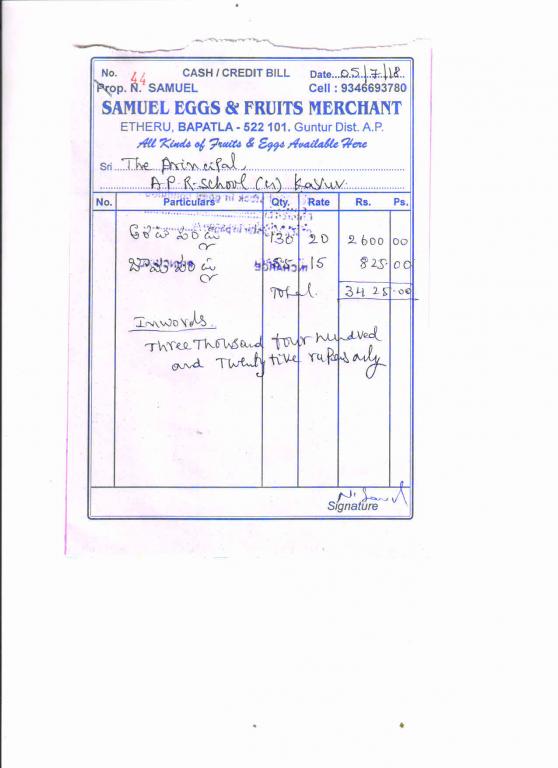 No. 44 CASH / CREDIT BILL Date...05/7/18..
Prop. N. SAMUEL Cell : 9346693780
SAMUEL EGGS & FRUITS MERCHANT
ETHERU, BAPATLA - 522 101. Guntur Dist. A.P.
All Kinds of Fruits & Eggs Available Here
Sri The Principal,
A.P.R. School
No. Particulars Qty. Rate Rs. Ps.
130 20 2600 00
55 15 825.00
Total. 3425.00
Inwords.
Three Thousand four hundred
and Twenty five rupees only
Signature